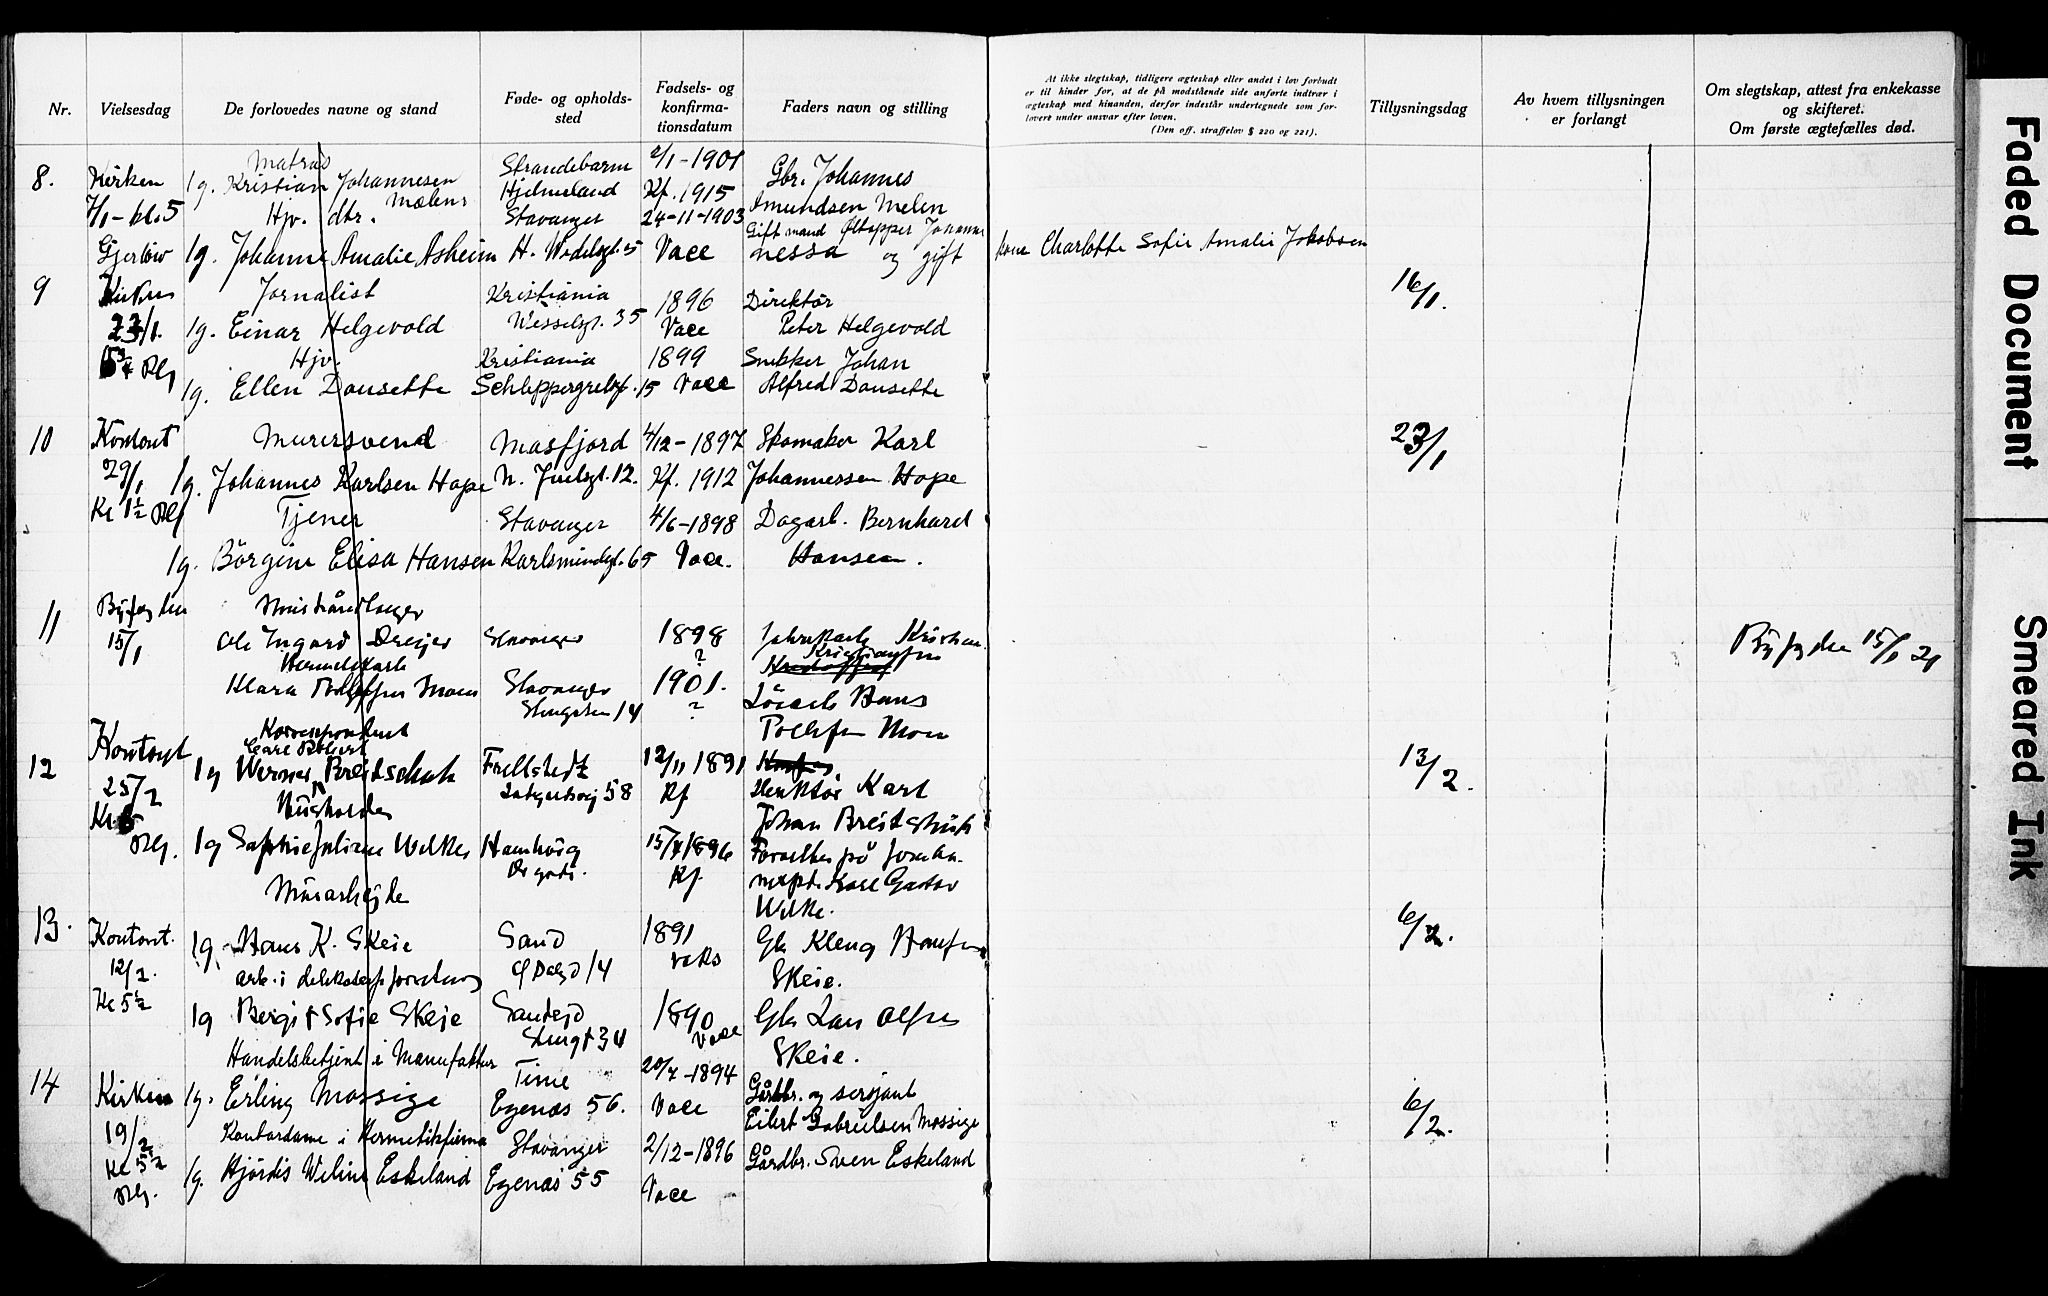 Nr. Vielsesdag De forlovedes navne og stand Føde- og opholdssted Fødsels- og konfirmationsdatum Faders navn og stilling
At ikke slegtskap, tidligere ægteskap eller andet i lov forbudt
er til hinder for, at de på modstående side anførte indtrær i
ægteskap med hinanden, derfor indestår undertegnede som for-
lovere under ansvar efter loven.
(Den off. straffelov § 220 og 221).
Tillysningsdag
Av hvem tillysningen
er forlangt
Om slegtskap, attest fra enkekasse
og skifteret.
Om første ægtefælles død.
Matros Strandebarm 2/1-1901
8. Kirken 1g. Kristian Johannesen Hjelmeland Kf. 1915 Gbr. Johannes
7/1-kl. 5 Hjv. dtr. Mælen Stavanger 24-11-1903 Amundsen Melen
Gift mand Øltapper Johann
Gjerløw 1g. Johanne Amalie Asheim H. Wedelsgt. 5 Vacc nessa og gift kone Charlotte Sofie Amalie Jakobsen
9 Kirken Jornalist Kristiania 1896 Direktør 16/1.
23/1. 1g. Einar Helgevold Wesselsgt. 35 Vacc Peter Helgevold
Hjv. Kristiania 1899 Snekker Johan
1g. Ellen Dousette Schleppegrelsgt. 15 Vacc Alfred Dousette
10 Kontoret Murersvend Masfjord 4/12-1897 Skomaker Karl 23/1
29/1 1g. Johannes Karlsen Hope N. Juelsgt. 12. Kf. 1912 Johannessen Hope
Kl 1½ Tjener Stavanger 4/6-1898 Dagarb. Bernhard
1g. Börgine Elisa Hansen Karlsmindegt. 65 Vacc. Hansen.
11 Byfogden
15/1 Ole Ingard Dreijer Stavanger 1898 Kristian
? Kristiansen
Klara Tollefsen Moen Stavanger 1901. Løsarb Hans
14 ? Tollefsen Moen
Byfogden 15/1 21
Korrespondent
Carl Robert
12 Kontoret 1g Werner Breitschuh Frellstedt 12/11 1891 13/2.
25/2 Husholder 58 Kf Direktør Karl
Kl 5 Johan Breitschuh
1g Sophie Juliane Wilke Hamburg 15/7 1896
Kf. Karl Gustav
Murarbejde Wilke.
13. Kontoret. 1g Hans K. Skeie Sand 1891 Gbr Kleng Hansen 6/2.
12/2. 14 vaks Skeie.
Kl 5½ 1g Bergit Sofie Skeje Sandejd 1890 Gbr Lars
34 Vacc Skeie.
Handelsbetjent i Manufaktur Time 20/7-1894
14 Kirken 1g. Erling Mossige Egenæs 56. Vacc Gårdbr. og serojant 6/2.
19/2 Kontordame i Hermetikfirma Stavanger 2/12-1896 Eilert Gabrielsen Mossige
Kl 5½ 1g. Hjördis Weline Eskeland Egenæs 55 Vacc Gårdbr. Sven Eskeland
Faded Document
Smeared Ink